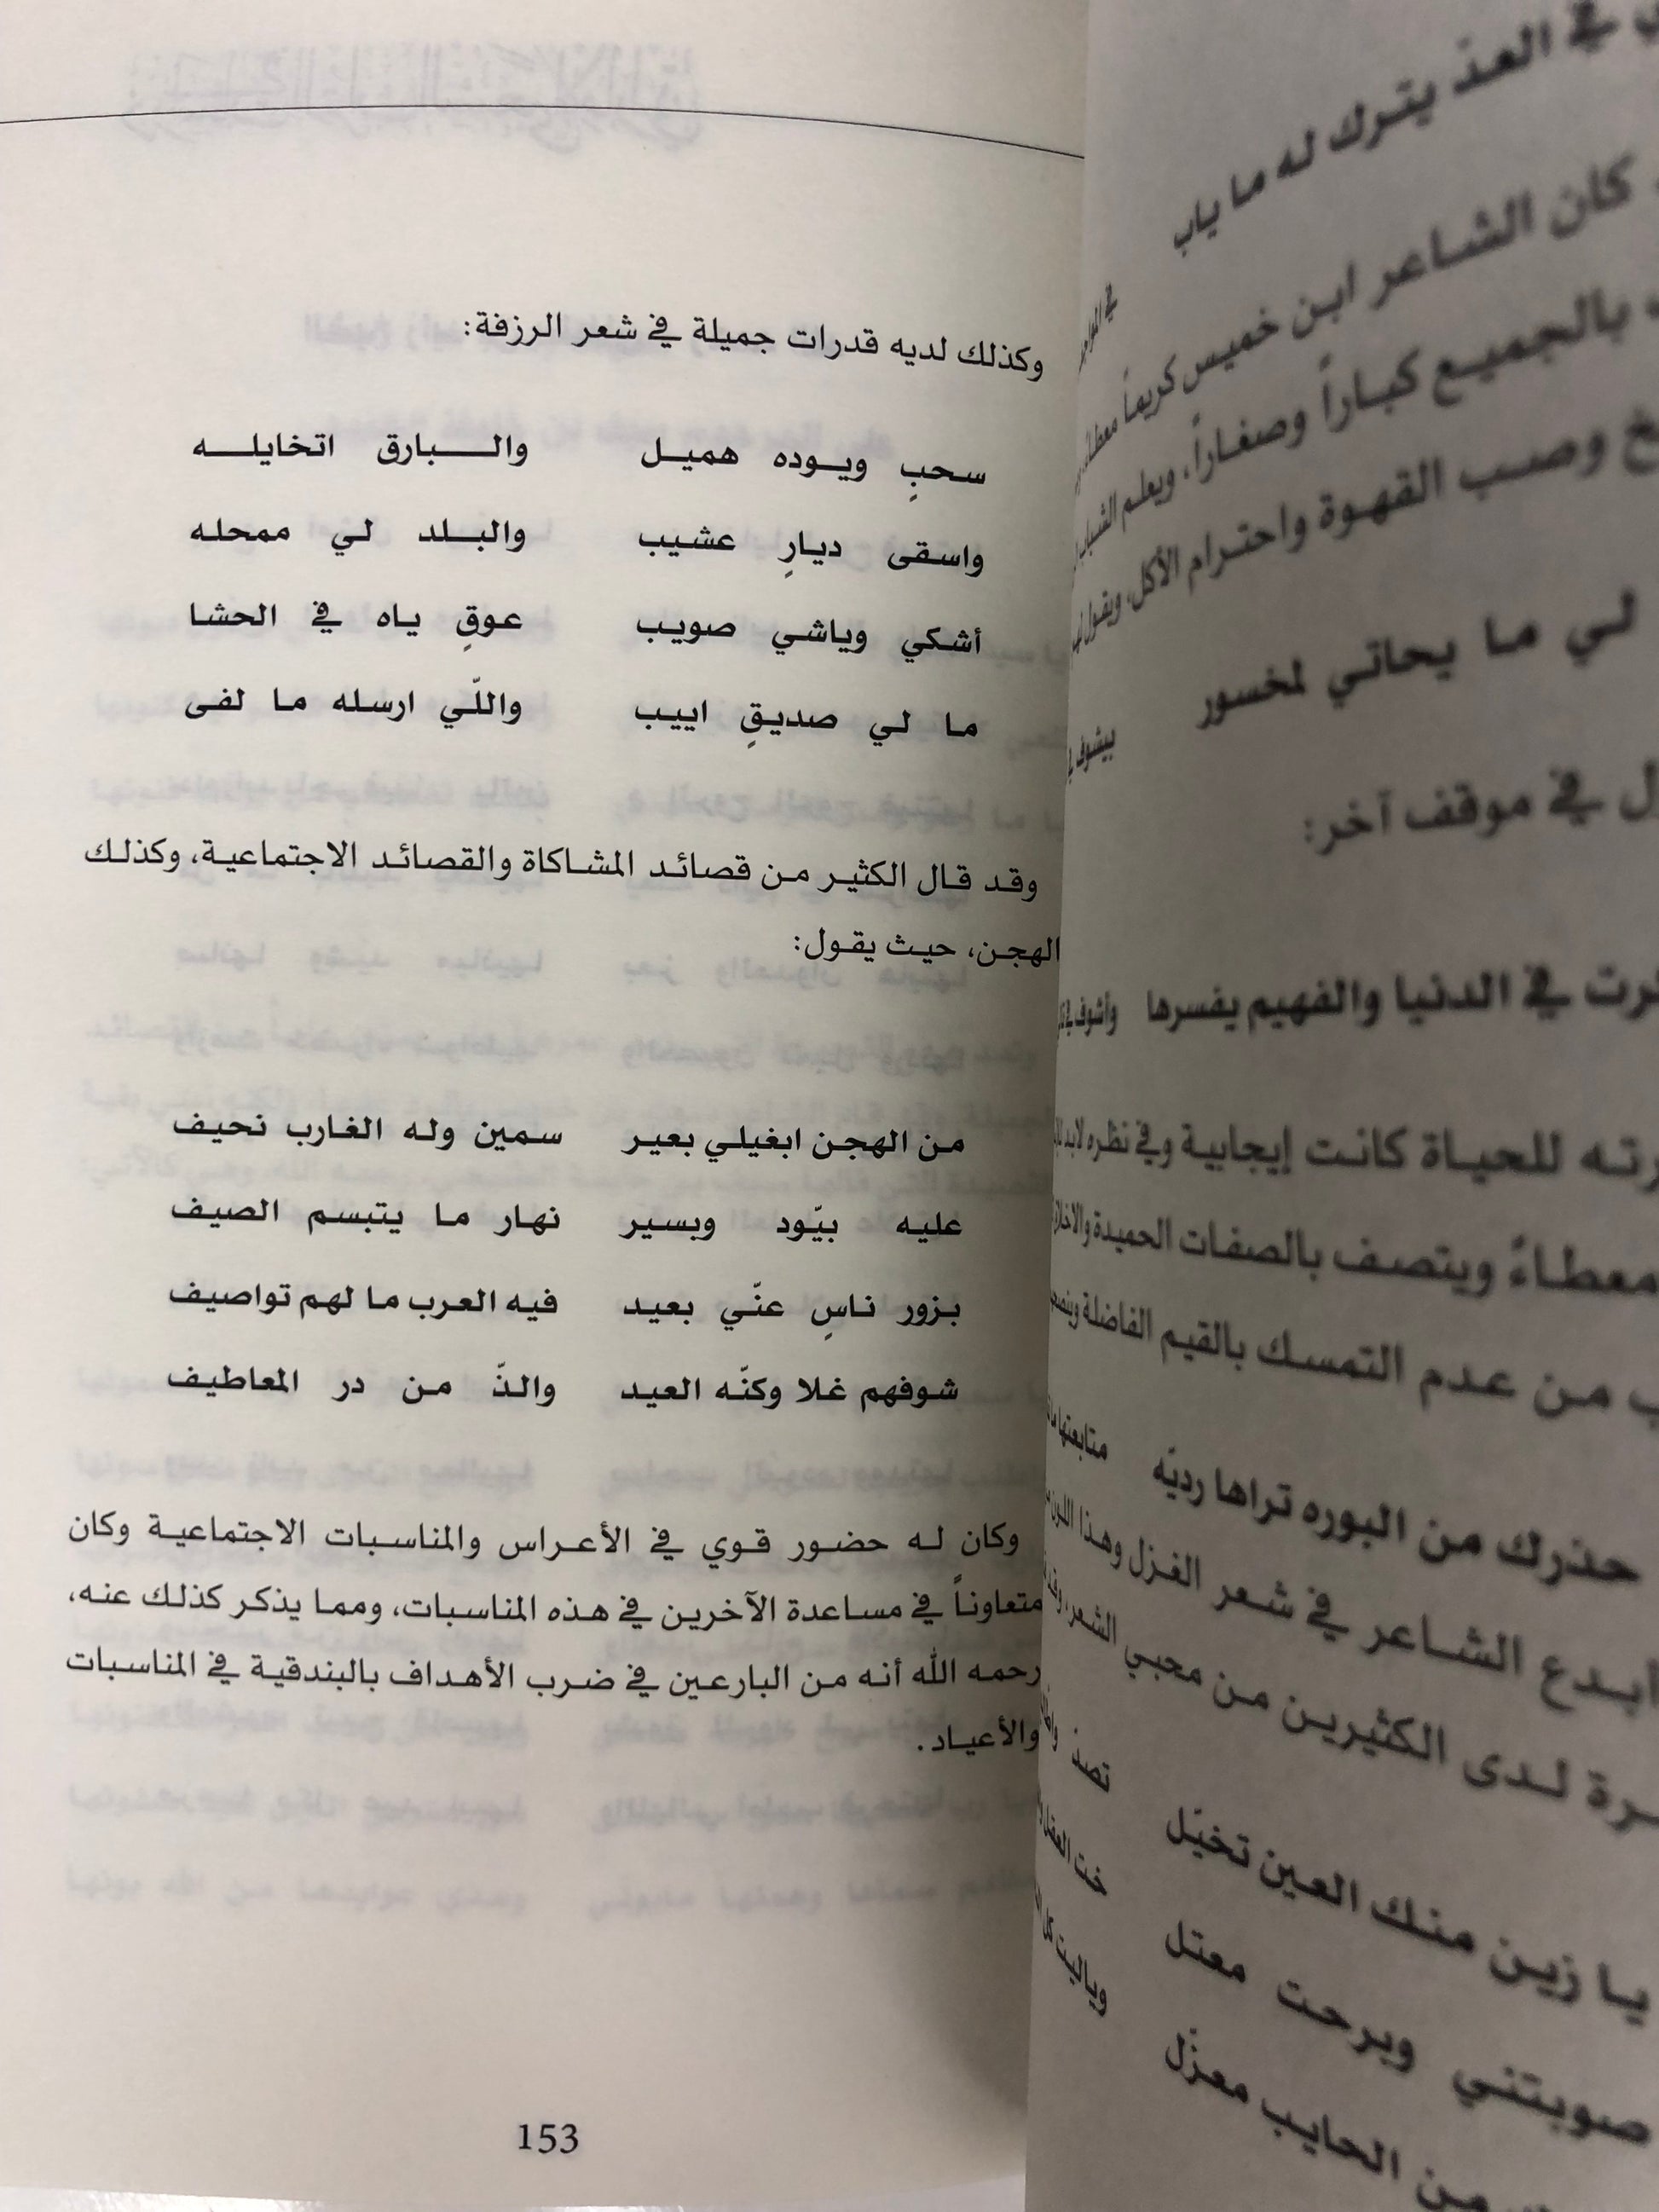 في العدّ يترك له ما ياب
كان الشاعر ابن خميس كريماً
بالجميع كباراً وصغاراً، ويعلم الشباب
وصب القهوة واحترام الأكل، ويقول
لي ما يحاتي لمخسور
بيشوف
في موقف آخر:
في الدنيا والفهيم يفسرها وأشوف
للحياة كانت إيجابية وفي نظره لابد
معطاءً ويتصف بالصفات الحميدة
من عدم التمسك بالقيم الفاضلة
حذرك من البوره تراها رديّه متابعتها
أبدع الشاعر في شعر الغزل وهذا اللون
لدى الكثيرين من محبي الشعر،
يا زين منك العين تخيّل
تصدّ
صوبتني وبرحت معتل
خت العقل
من الحايب معزّل
وياليت كل
وكذلك لديه قدرات جميلة في شعر الرزفة:
سحبٍ ويوده هميل والبارق اتخايله
واسقى ديارٍ عشيب والبلد لي ممحله
أشكي وياشي صويب عوقٍ ياه في الحشا
ما لي صديقٍ اييب واللّي ارسله ما لفى
وقد قال الكثير من قصائد المشاكاة والقصائد الاجتماعية، وكذلك
الهجن، حيث يقول:
من الهجن ابغيلي بعير سمين وله الغارب نحيف
عليه بيّود وبسير نهار ما يتبسم الصيف
بزور ناسٍ عنّي بعيد فيه العرب ما لهم تواصيف
شوفهم غلا وكنّه العيد والذّ من در المعاطيف
وكان له حضور قوي في الأعراس والمناسبات الاجتماعية وكان
متعاوناً في مساعدة الآخرين في هذه المناسبات، ومما يذكر كذلك عنه،
رحمه الله أنه من البارعين في ضرب الأهداف بالبندقية في المناسبات
والأعياد.
153